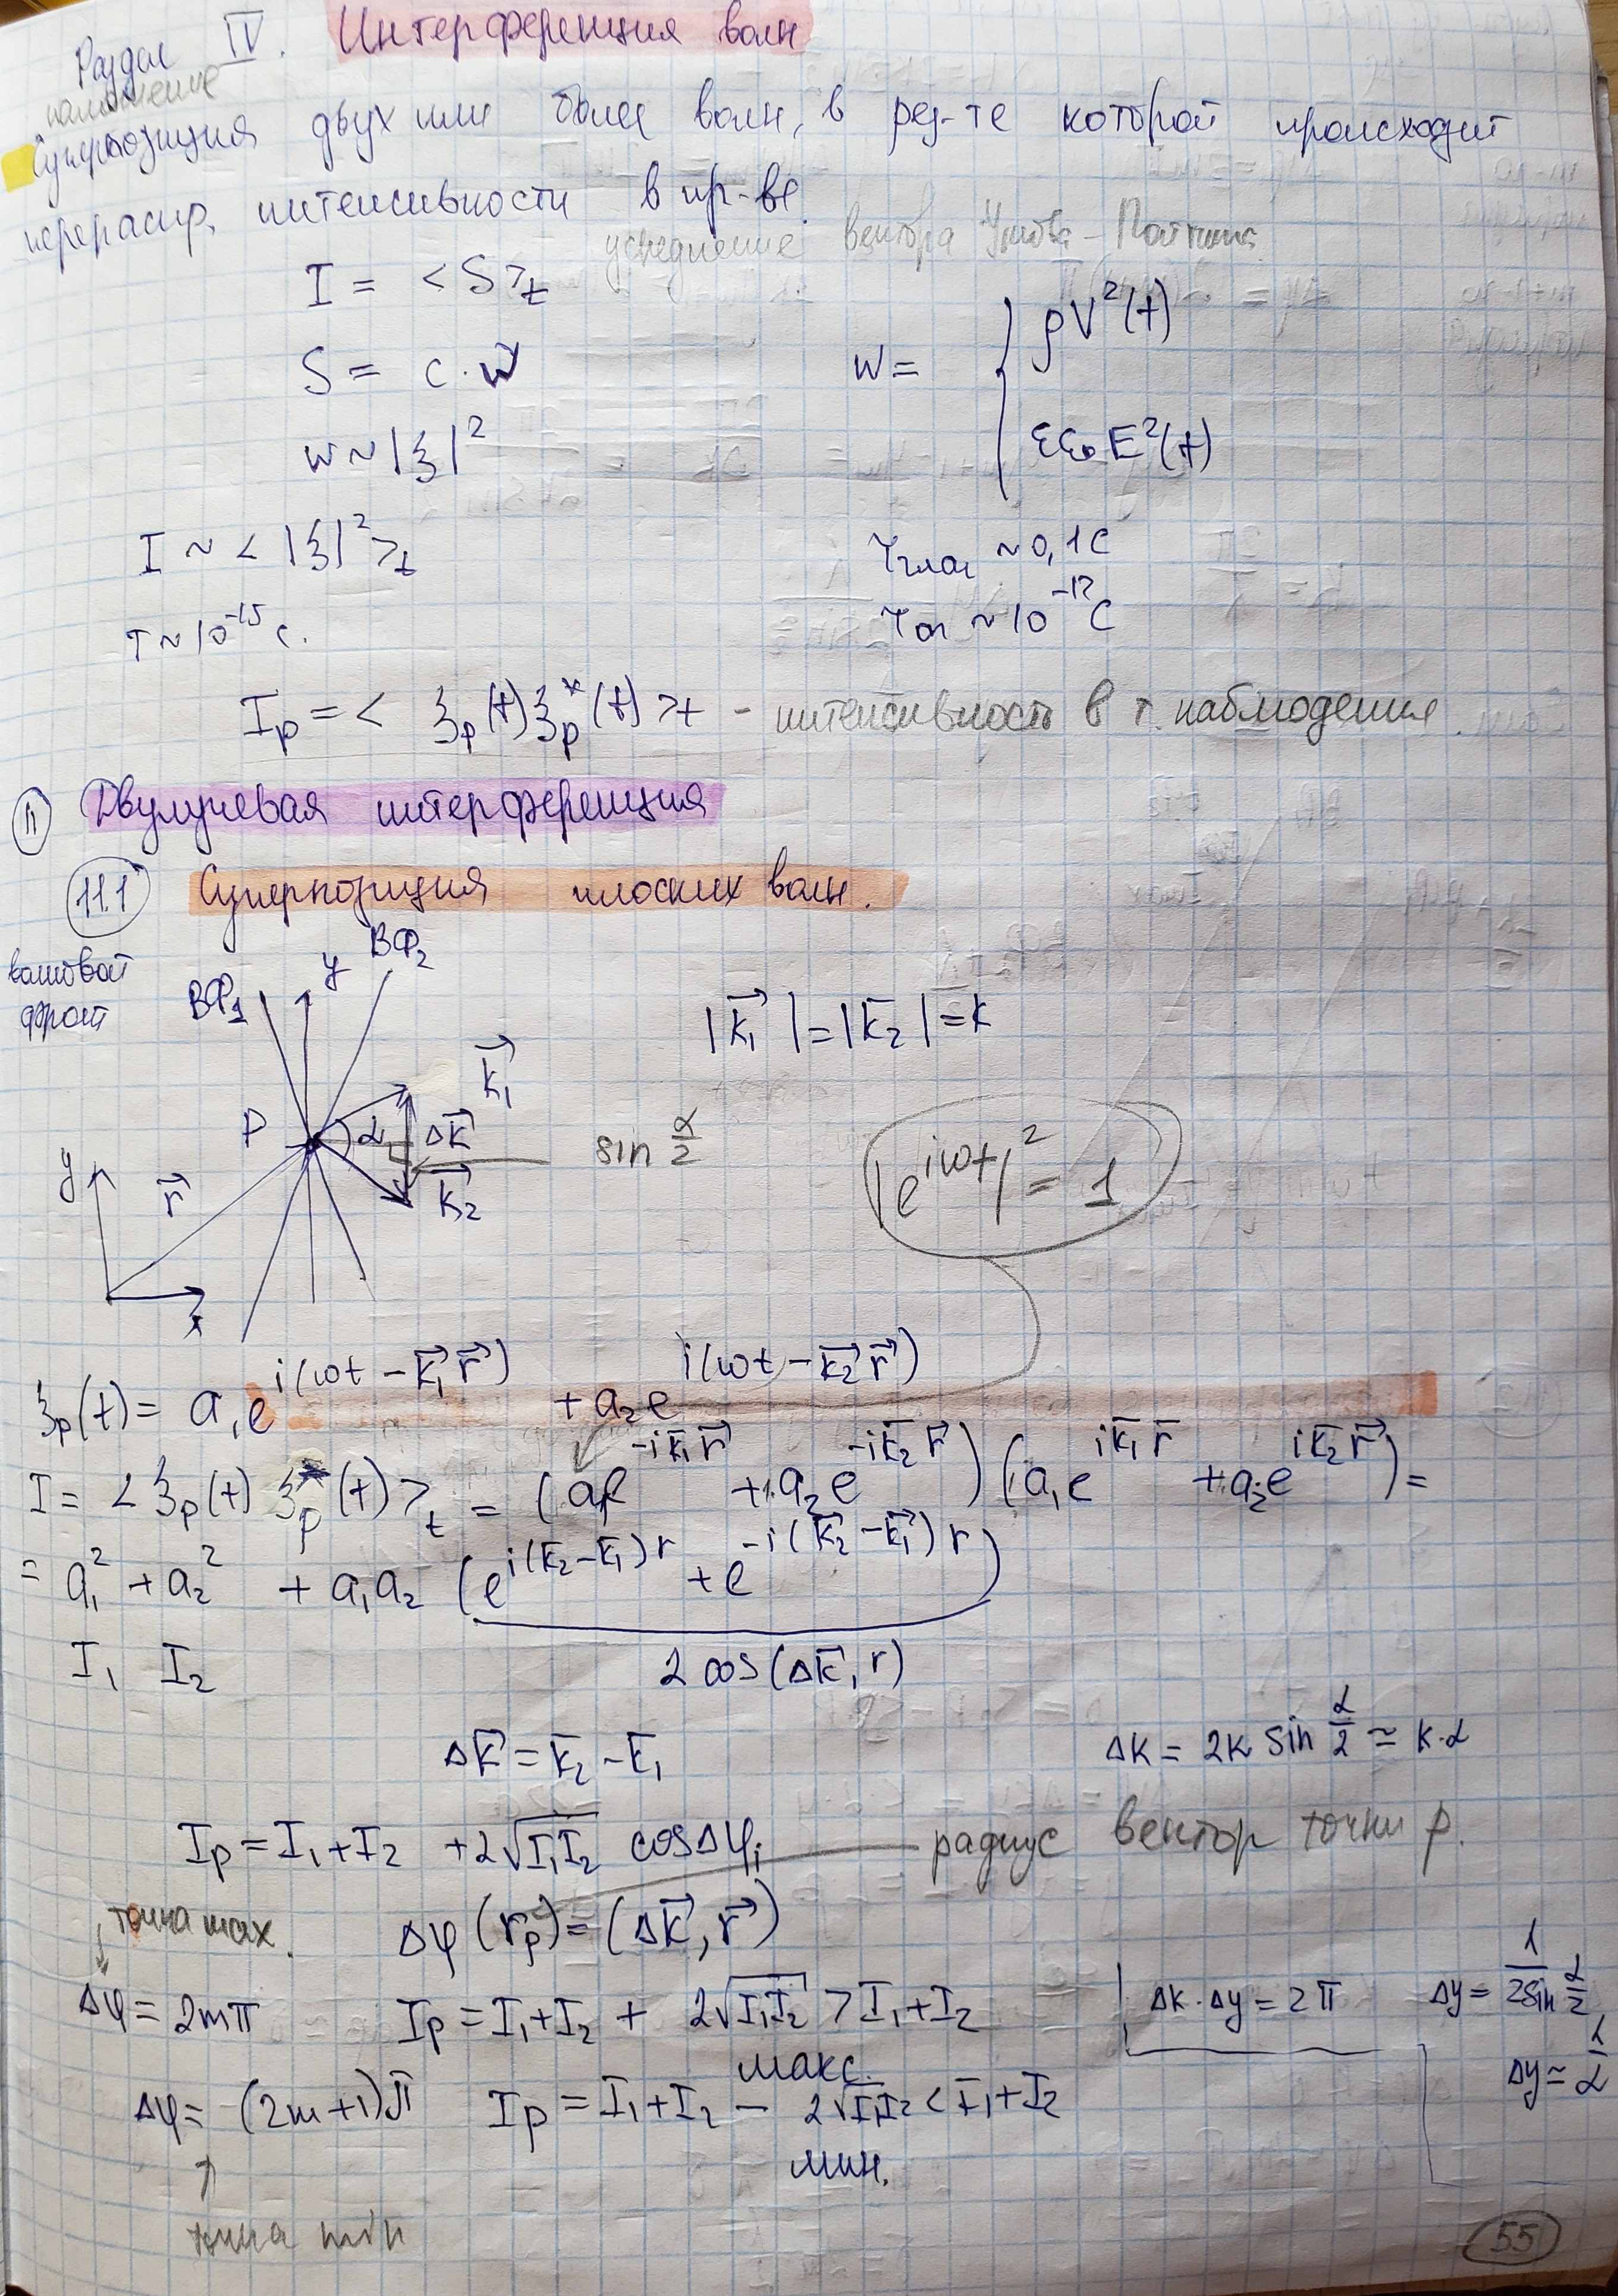 Раздел IV. Интерференция волн
наложение
Суперпозиция двух или более волн, в рез-те которой происходит
перераспр. интенсивности в пр-ве.
усреднение вектора Умова - Пойтинга
I = < S >t
S = c · w
w = { ρV²(t)
εε₀E²(t)
w ~ |ξ|²
I ~ < |ξ|² >t
τглаз ~ 0,1 с
T ~ 10⁻¹⁵ с.
τоп ~ 10⁻¹² с
Ip = < ξp(t) ξp*(t) >t - интенсивность в т. наблюдения.
11 Двулучевая интерференция
11.1 Суперпозиция плоских волн.
волновой фронт
ВФ₁ y ВФ₂
|k⃗₁| = |k⃗₂| = k
k⃗₁
P α Δk⃗
sin α/2
k⃗₂
|e^{iωt}|² = 1
y r⃗
x
ξp(t) = a₁e^{i(ωt - k⃗₁r⃗)} + a₂e^{i(ωt - k⃗₂r⃗)}
I = < ξp(t) ξp*(t) >t = (a₁e^{-ik⃗₁r⃗} + a₂e^{-ik⃗₂r⃗}) (a₁e^{ik⃗₁r⃗} + a₂e^{ik⃗₂r⃗}) =
= a₁² + a₂² + a₁a₂ (e^{i(k⃗₂-k⃗₁)r} + e^{-i(k⃗₂-k⃗₁)r})
I₁ I₂ 2 cos(Δk⃗, r)
Δk⃗ = k⃗₂ - k⃗₁
Δk = 2k sin α/2 ≃ k·α
Ip = I₁ + I₂ + 2√(I₁I₂) cosΔφ; радиус вектор точки p.
точка max.
Δφ(rp) = (Δk⃗, r⃗)
Δφ = 2mπ Ip = I₁ + I₂ + 2√(I₁I₂) > I₁ + I₂
макс.
Δk · Δy = 2π Δy = λ/(2sin α/2)
Δy ≃ λ/α
Δφ = (2m+1)π Ip = I₁ + I₂ - 2√(I₁I₂) < I₁ + I₂
мин.
точка min
55